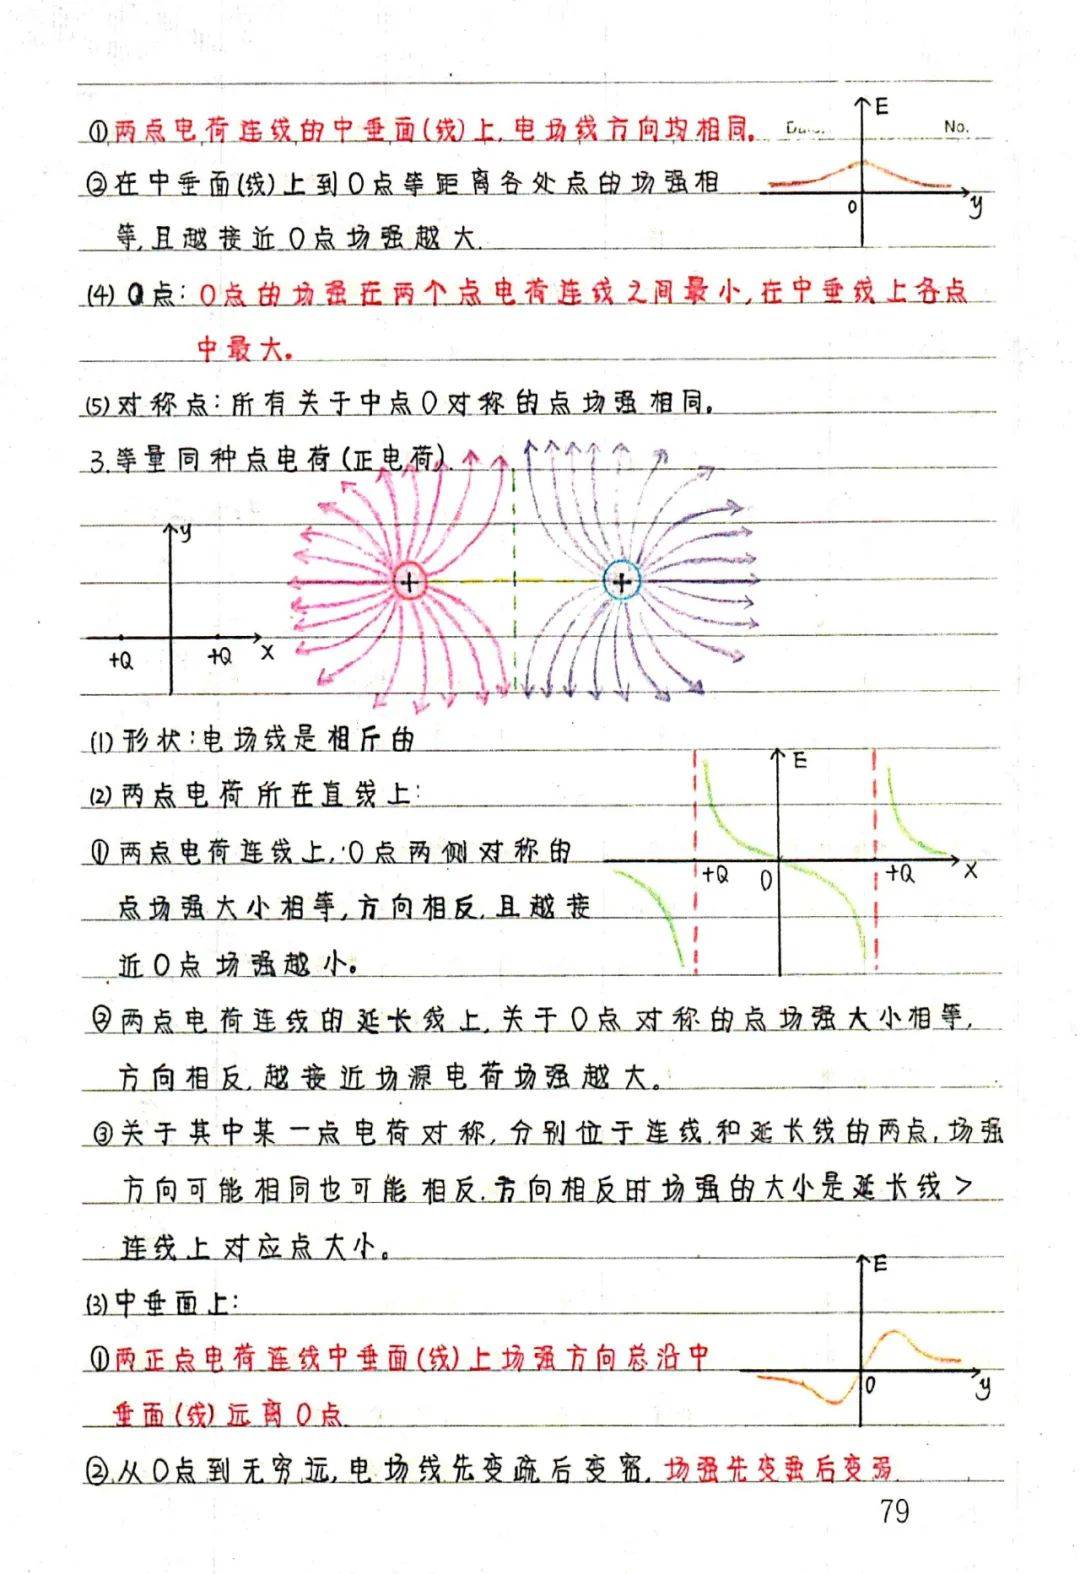 ①两点电荷连线的中垂面(线)上,电场线方向均相同。
No.
E
y
0
②在中垂面(线)上到O点等距离各处点的场强相
等,且越接近O点场强越大.
(4) O点:O点的场强在两个点电荷连线之间最小,在中垂线上各点
中最大。
(5)对称点:所有关于中点O对称的点场强相同。
3.等量同种点电荷(正电荷).
+
+
y
+Q
+Q
X
(1)形状:电场线是相斥的
(2)两点电荷所在直线上:
E
+Q
0
+Q
X
①两点电荷连线上,O点两侧对称的
点场强大小相等,方向相反,且越接
近O点场强越小。
②两点电荷连线的延长线上,关于O点对称的点场强大小相等,
方向相反,越接近场源电荷场强越大。
③关于其中某一点电荷对称,分别位于连线和延长线的两点,场强
方向可能相同也可能相反.方向相反时场强的大小是延长线>
连线上对应点大小。
(3)中垂面上:
E
0
y
①两正点电荷连线中垂面(线)上场强方向总沿中
垂面(线)远离O点.
②从O点到无穷远,电场线先变疏后变密.场强先变强后变弱.
79